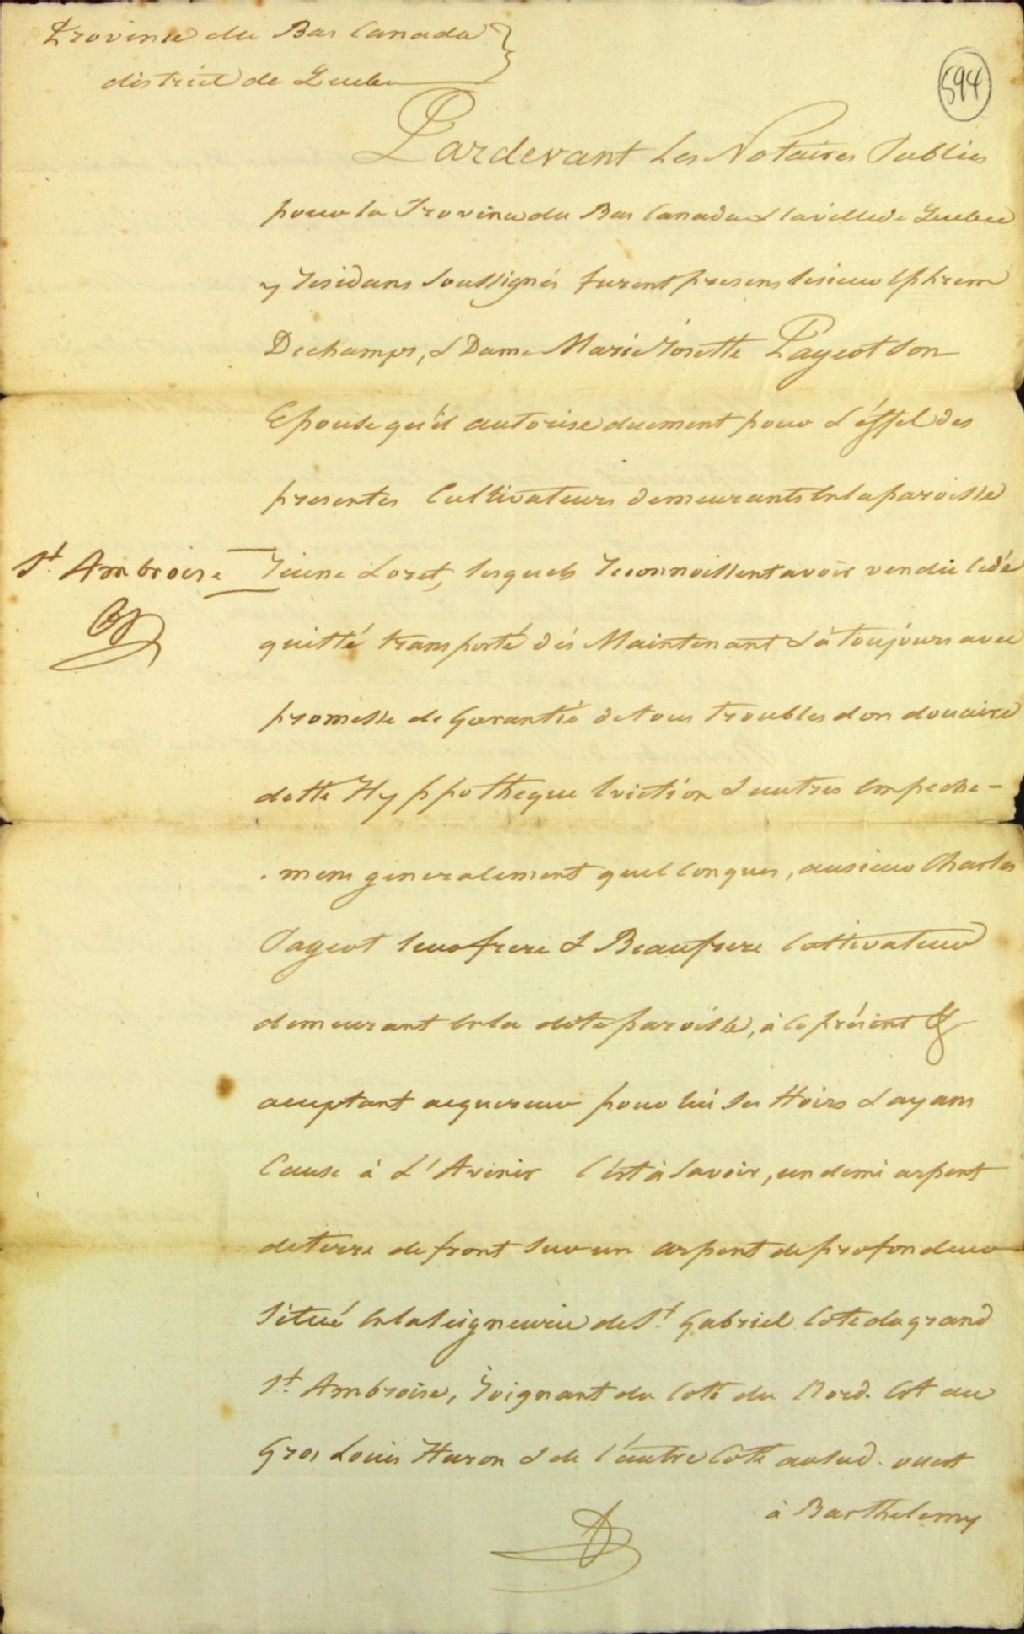 Province du Bas Canada
district de Quebec
594
Pardevant Les Notaires Publics
pour la Province du Bas Canada & la ville de Quebec
y residans Soussignés furent presens le sieur Ephrem
Dechamps, & Dame Marie Josette Pageot Son
Epouse qu'il autorise duement pour L'éffet des
presentes Cultivateurs demeurants en la paroisse
St. Ambroise Jeune Loret, lesquels reconnoissent avoir vendu cédé
quitté transporté dès Maintenant & à toujours avec
promesse de Garantié de tous troubles don douaire
dette Hyppotheque Eviction & autres Empeche-
-mens generalement quelconques, au sieur Charles
Pageot leur frere & Beaufrere Cultivateur
demeurant en la dite paroisse, à ce présent &
acceptant acquereur pour lui Ses Hoirs & ayans
Cause à L'Avenir C'est à Savoir, un demi arpent
de terre de front Sur un arpent de profondeur
Situé en la Seigneurie de St. Gabriel Cote du grand
St. Ambroise, Joignant du Coté du Nord. Est au
Gros Louis Huron & de l'autre Coté au Sud. ouest
à Barthelemy